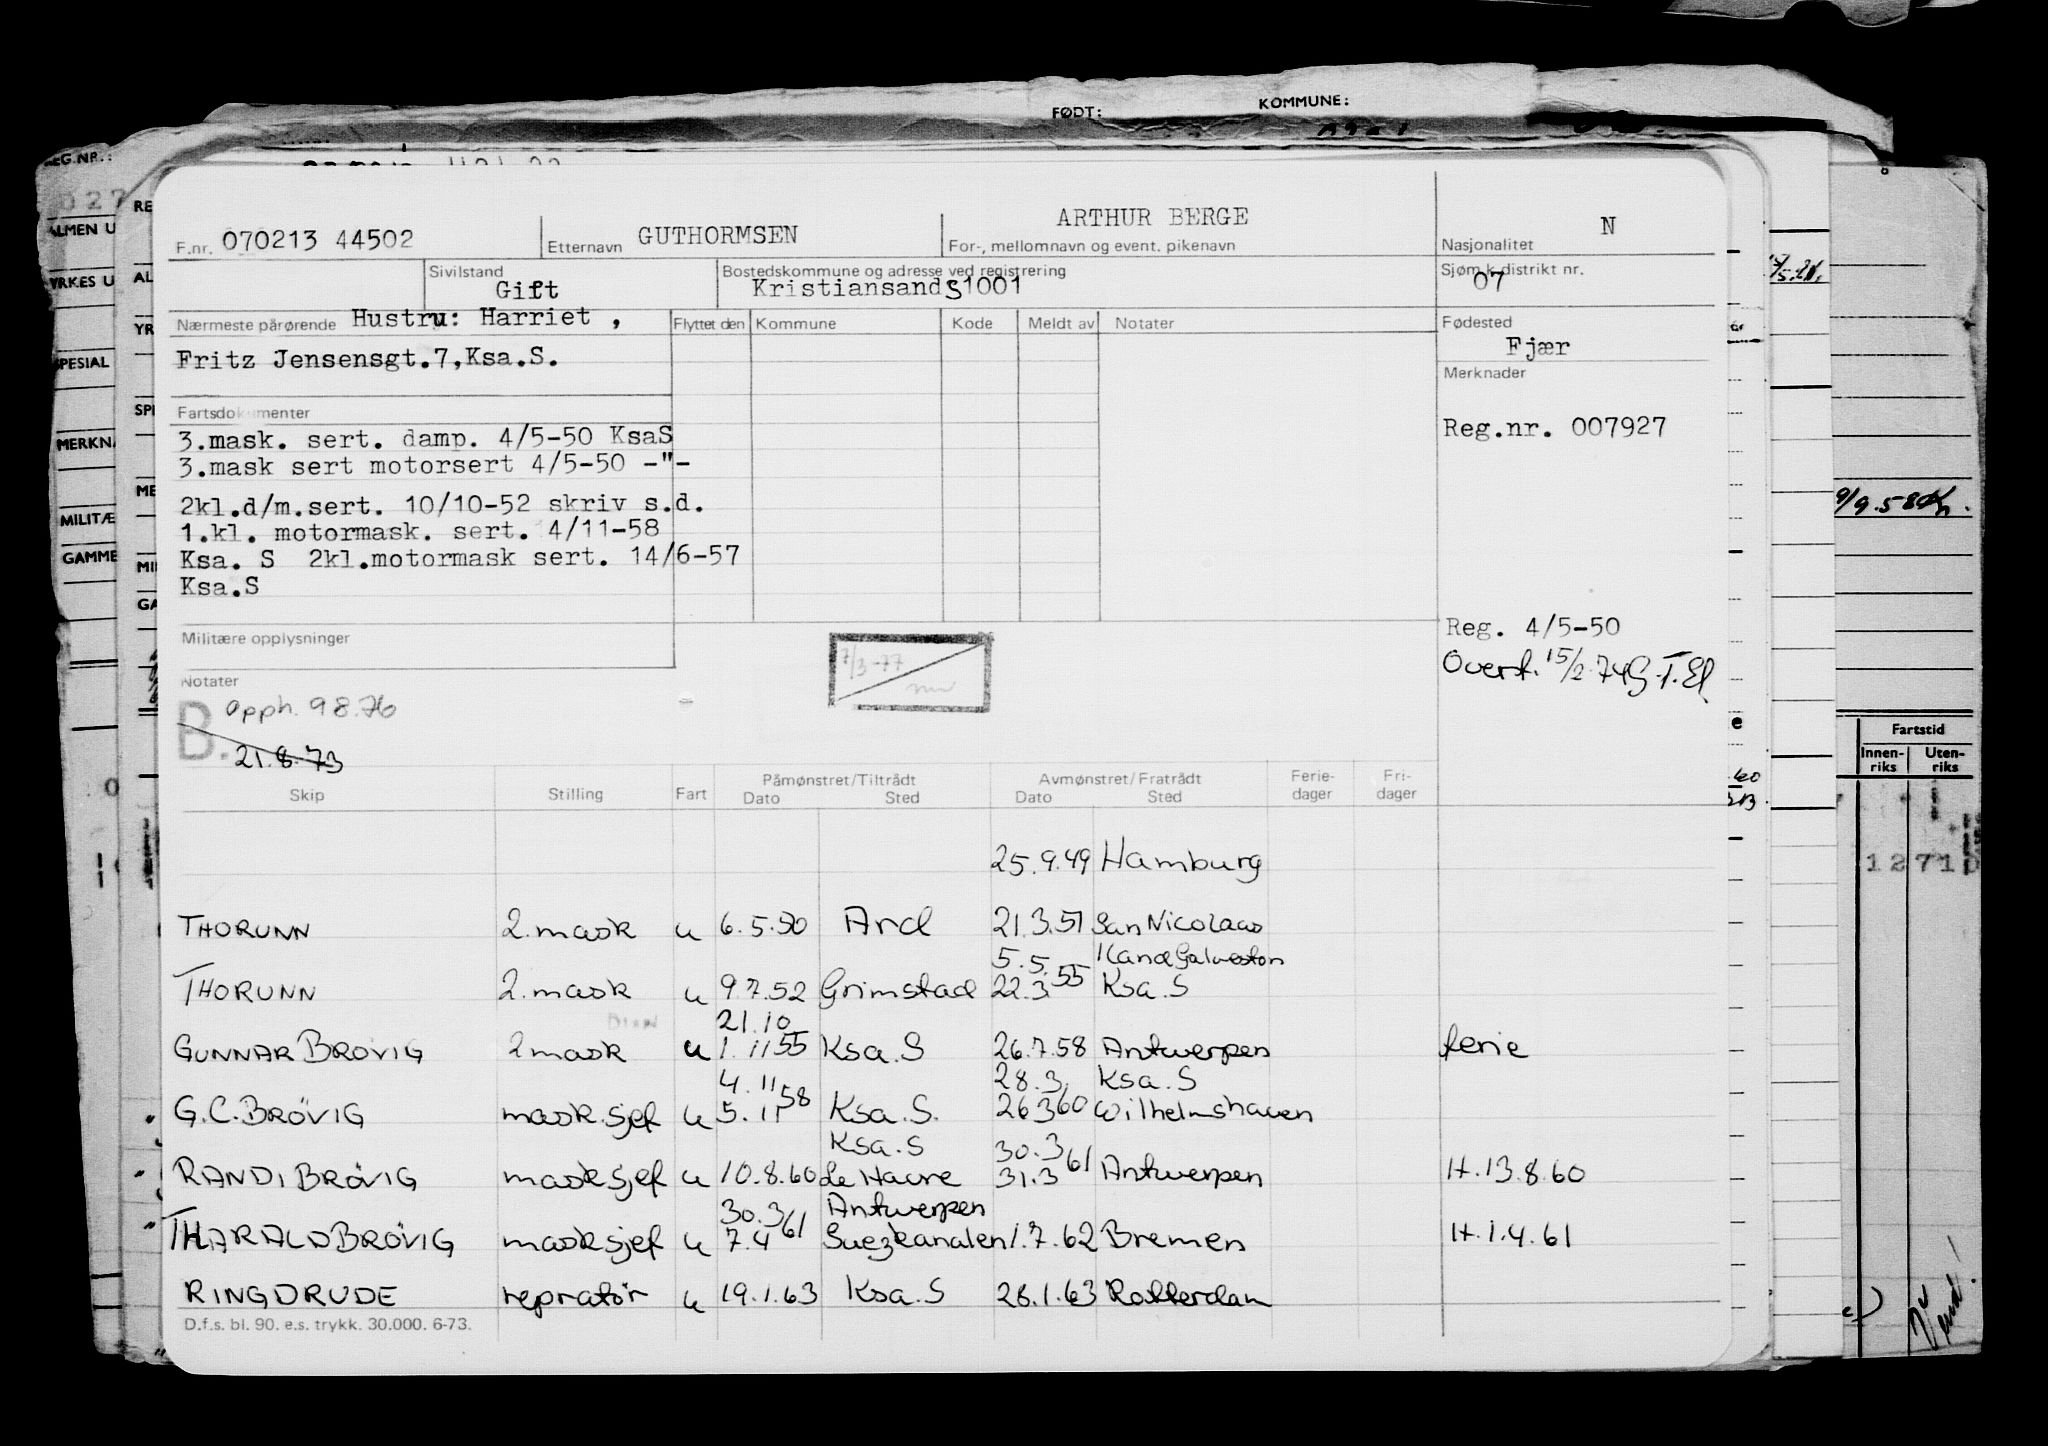 FØDT:
KOMMUNE:
F.nr. 070213 44502
Etternavn GUTHORMSEN
ARTHUR BERGE
For-, mellomnavn og event. pikenavn
N
Nasjonalitet
Sivilstand
Gift
Bostedskommune og adresse ved registrering
Kristiansand S 1001
Sjøm.k.distrikt nr.
07
Nærmeste pårørende Hustru: Harriet ,
Fritz Jensensgt.7,Ksa.S.
Flyttet den Kommune Kode Meldt av Notater
Fødested
Fjær
Merknader
Reg.nr. 007927
Fartsdokumenter
3.mask. sert. damp. 4/5-50 KsaS
3.mask sert motorsert 4/5-50 -"-
2kl.d/m.sert. 10/10-52 skriv s.d.
1.kl. motormask. sert. 4/11-58
Ksa. S 2kl.motormask sert. 14/6-57
Ksa.S
Reg. 4/5-50
Overf. 15/2.74
Militære opplysninger
7/3-77
Notater
B.
Opph. 9 8.76
21.8.73
Skip Stilling Fart Påmønstret/Tiltrådt Dato Sted Avmønstret/Fratrådt Dato Sted Ferie-dager Fri-dager
25.9.49 Hamburg
THORUNN 2.mask u 6.5.50 Ard 21.3.51 San Nicolaas
5.5. Galveston
THORUNN 2.mask u 9.7.52 Grimstad 22.3 55 Ksa.S
21.10
GUNNAR BRØVIG 2 mask u 1.11 55 Ksa.S 26.7.58 Antwerpen ferie
4.11 28.3 Ksa.S
G.C.BRØVIG mask.sjef u 5.11 58 Ksa.S. 26.3 60 Wilhelmshaven
Ksa.S 30.3
RANDI BRØVIG mask sjef u 10.8.60 Le Havre 31.3 61 Antwerpen H.13.8.60
30.3 Antwerpen
THARALD BRØVIG mask sjef u 7.4 61 Suezkanalen 1.7.62 Bremen H.1.4.61
RINGDRUDE repratør u 19.1.63 Ksa.S 28.1.63 Rotterdam
D.f.s. bl. 90. e.s. trykk. 30.000. 6-73.
Fartstid
Innen-riks Uten-riks
1271